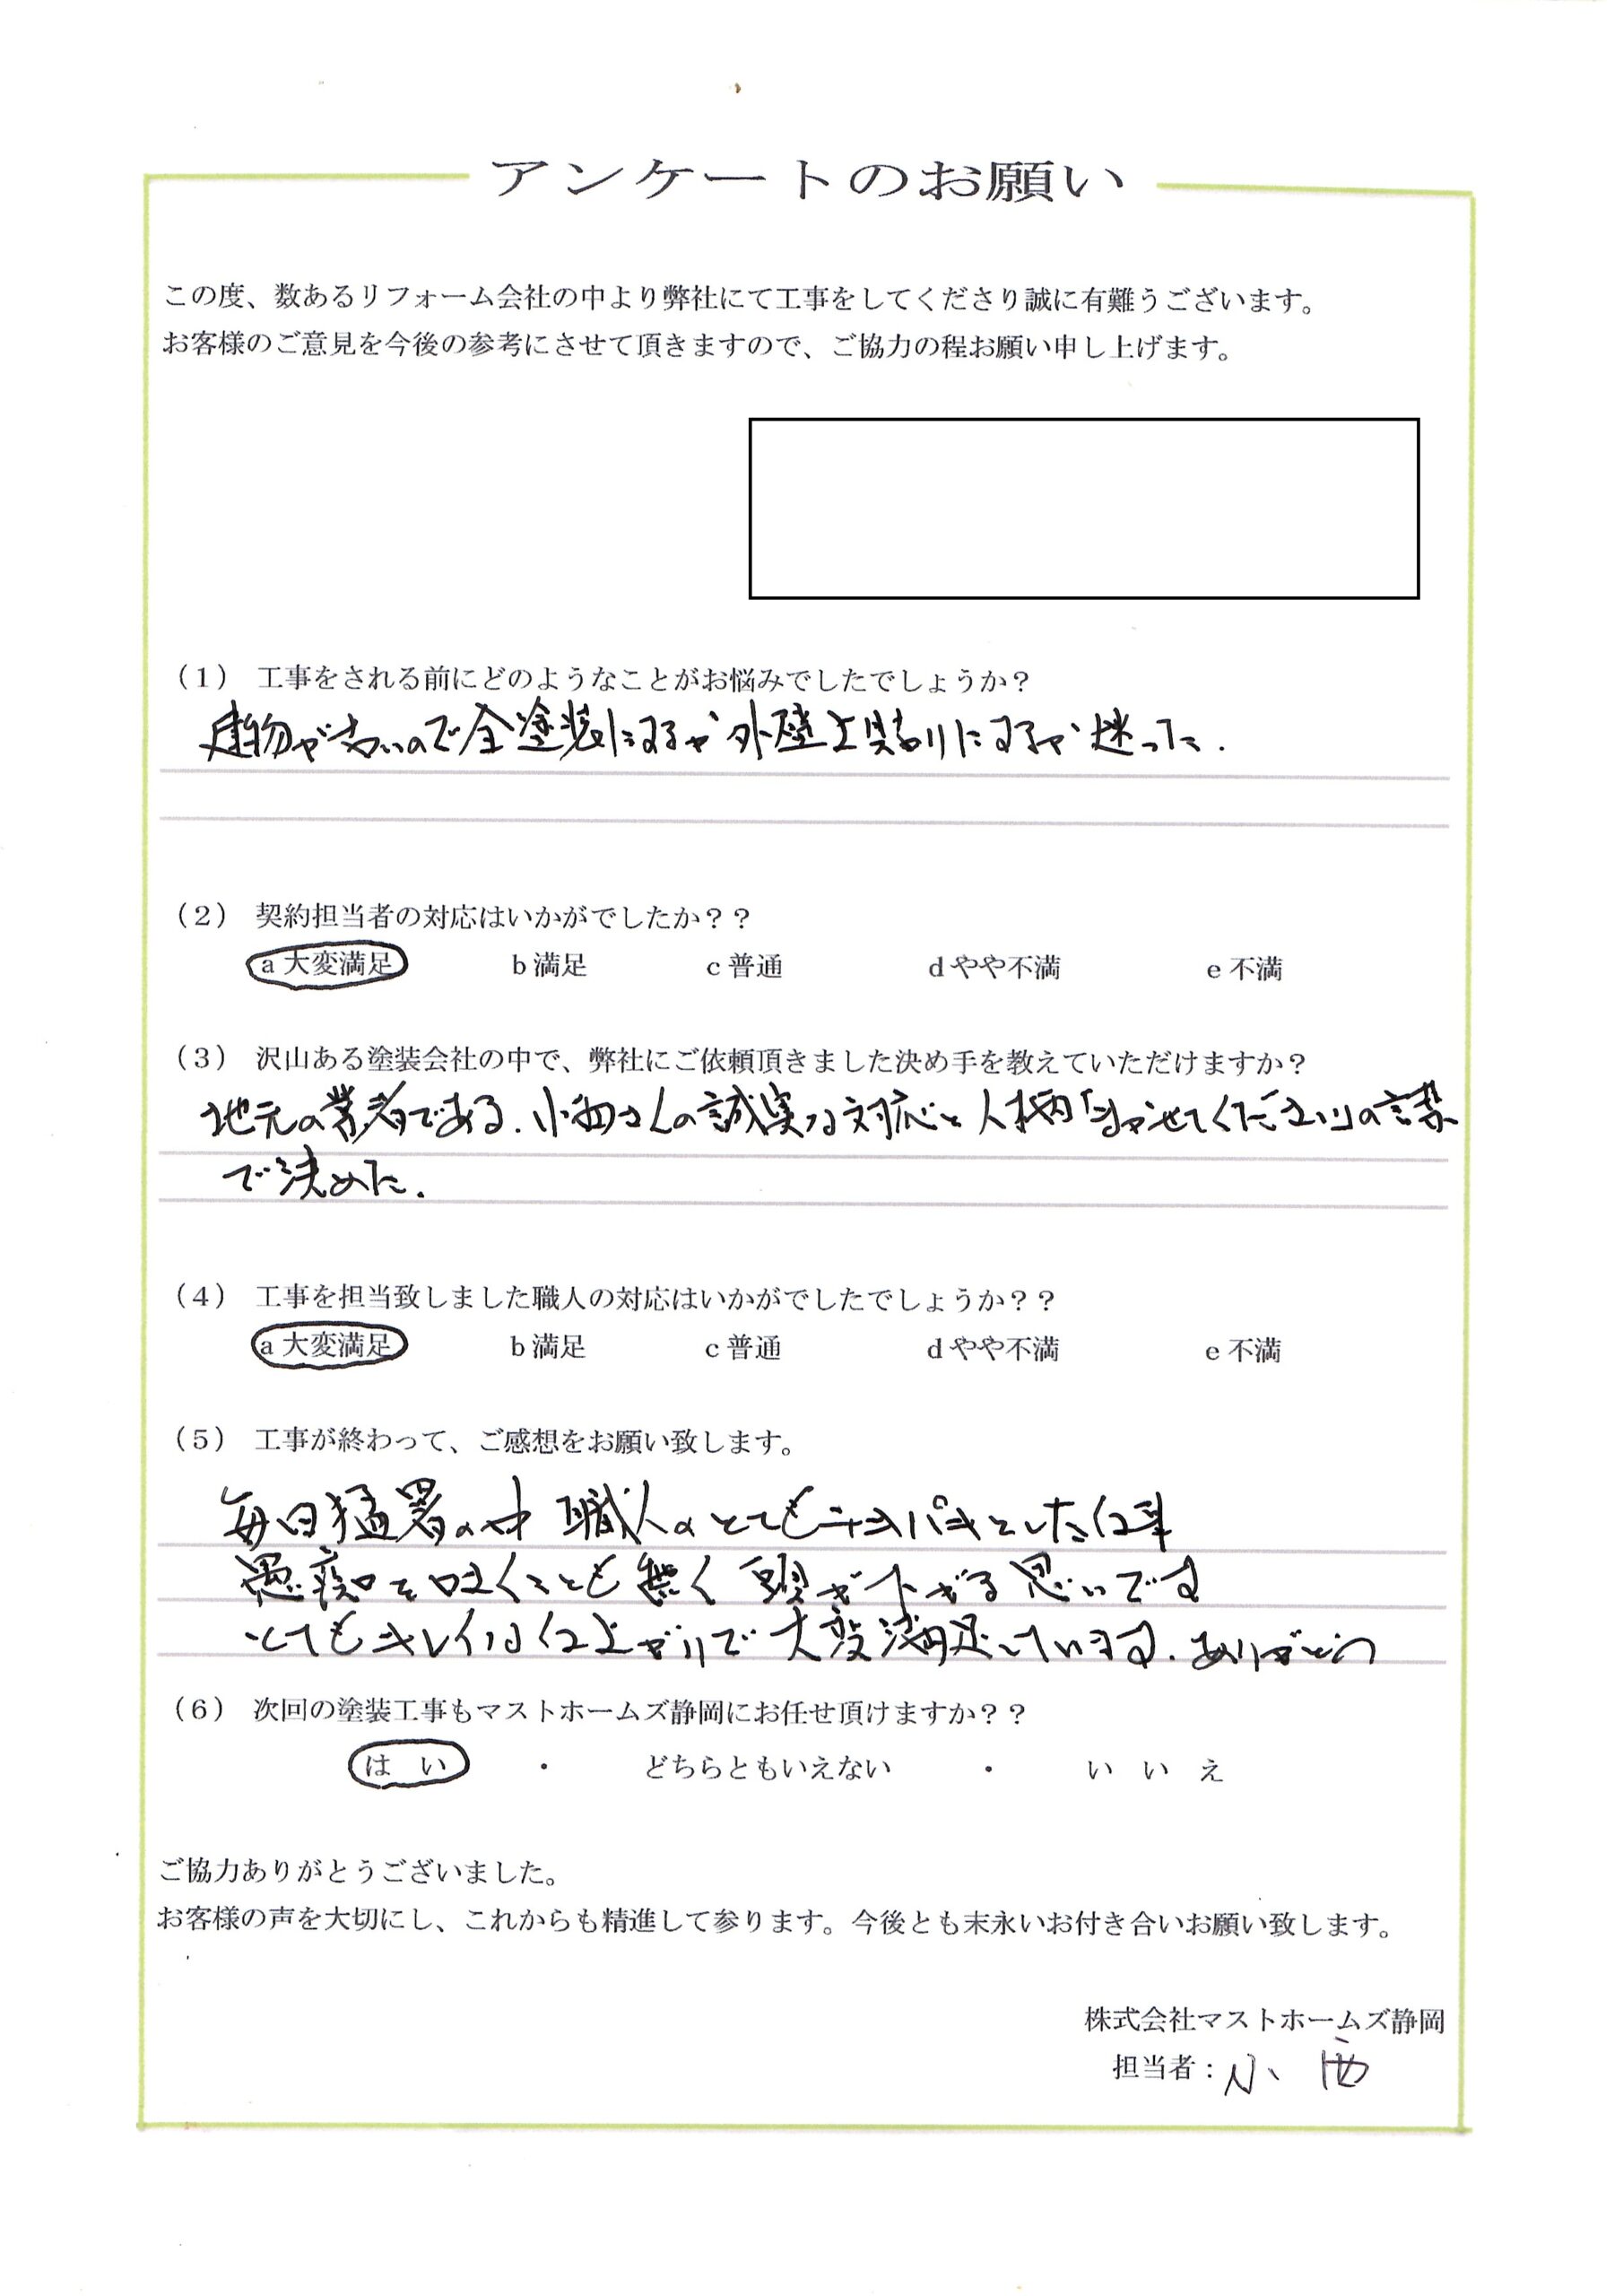 アンケートのお願い
この度、数あるリフォーム会社の中より弊社にて工事をしてくださり誠に有難うございます。
お客様のご意見を今後の参考にさせて頂きますので、ご協力の程お願い申し上げます。
(1) 工事をされる前にどのようなことがお悩みでしたでしょうか？
建物が古いので全塗装にするか外壁上張りにするか迷った.
(2) 契約担当者の対応はいかがでしたか？？
a 大変満足 b 満足 c 普通 d やや不満 e 不満
(3) 沢山ある塗装会社の中で、弊社にご依頼頂きました決め手を教えていただけますか？
地元の業者である. 小西さんの誠実な対応と人柄「まかせてください」の言葉
で決めた.
(4) 工事を担当致しました職人の対応はいかがでしたでしょうか？？
a 大変満足 b 満足 c 普通 d やや不満 e 不満
(5) 工事が終わって、ご感想をお願い致します。
毎日猛署の中 職人のとてもテキパキとした仕事
愚痴を吐くことも無く 頭が下がる思いです
とてもキレイな仕上がりで大変満足しています. ありがとう
(6) 次回の塗装工事もマストホームズ静岡にお任せ頂けますか？？
は い ・ どちらともいえない ・ い い え
ご協力ありがとうございました。
お客様の声を大切にし、これからも精進して参ります。今後とも末永いお付き合いお願い致します。
株式会社マストホームズ静岡
担当者：小西